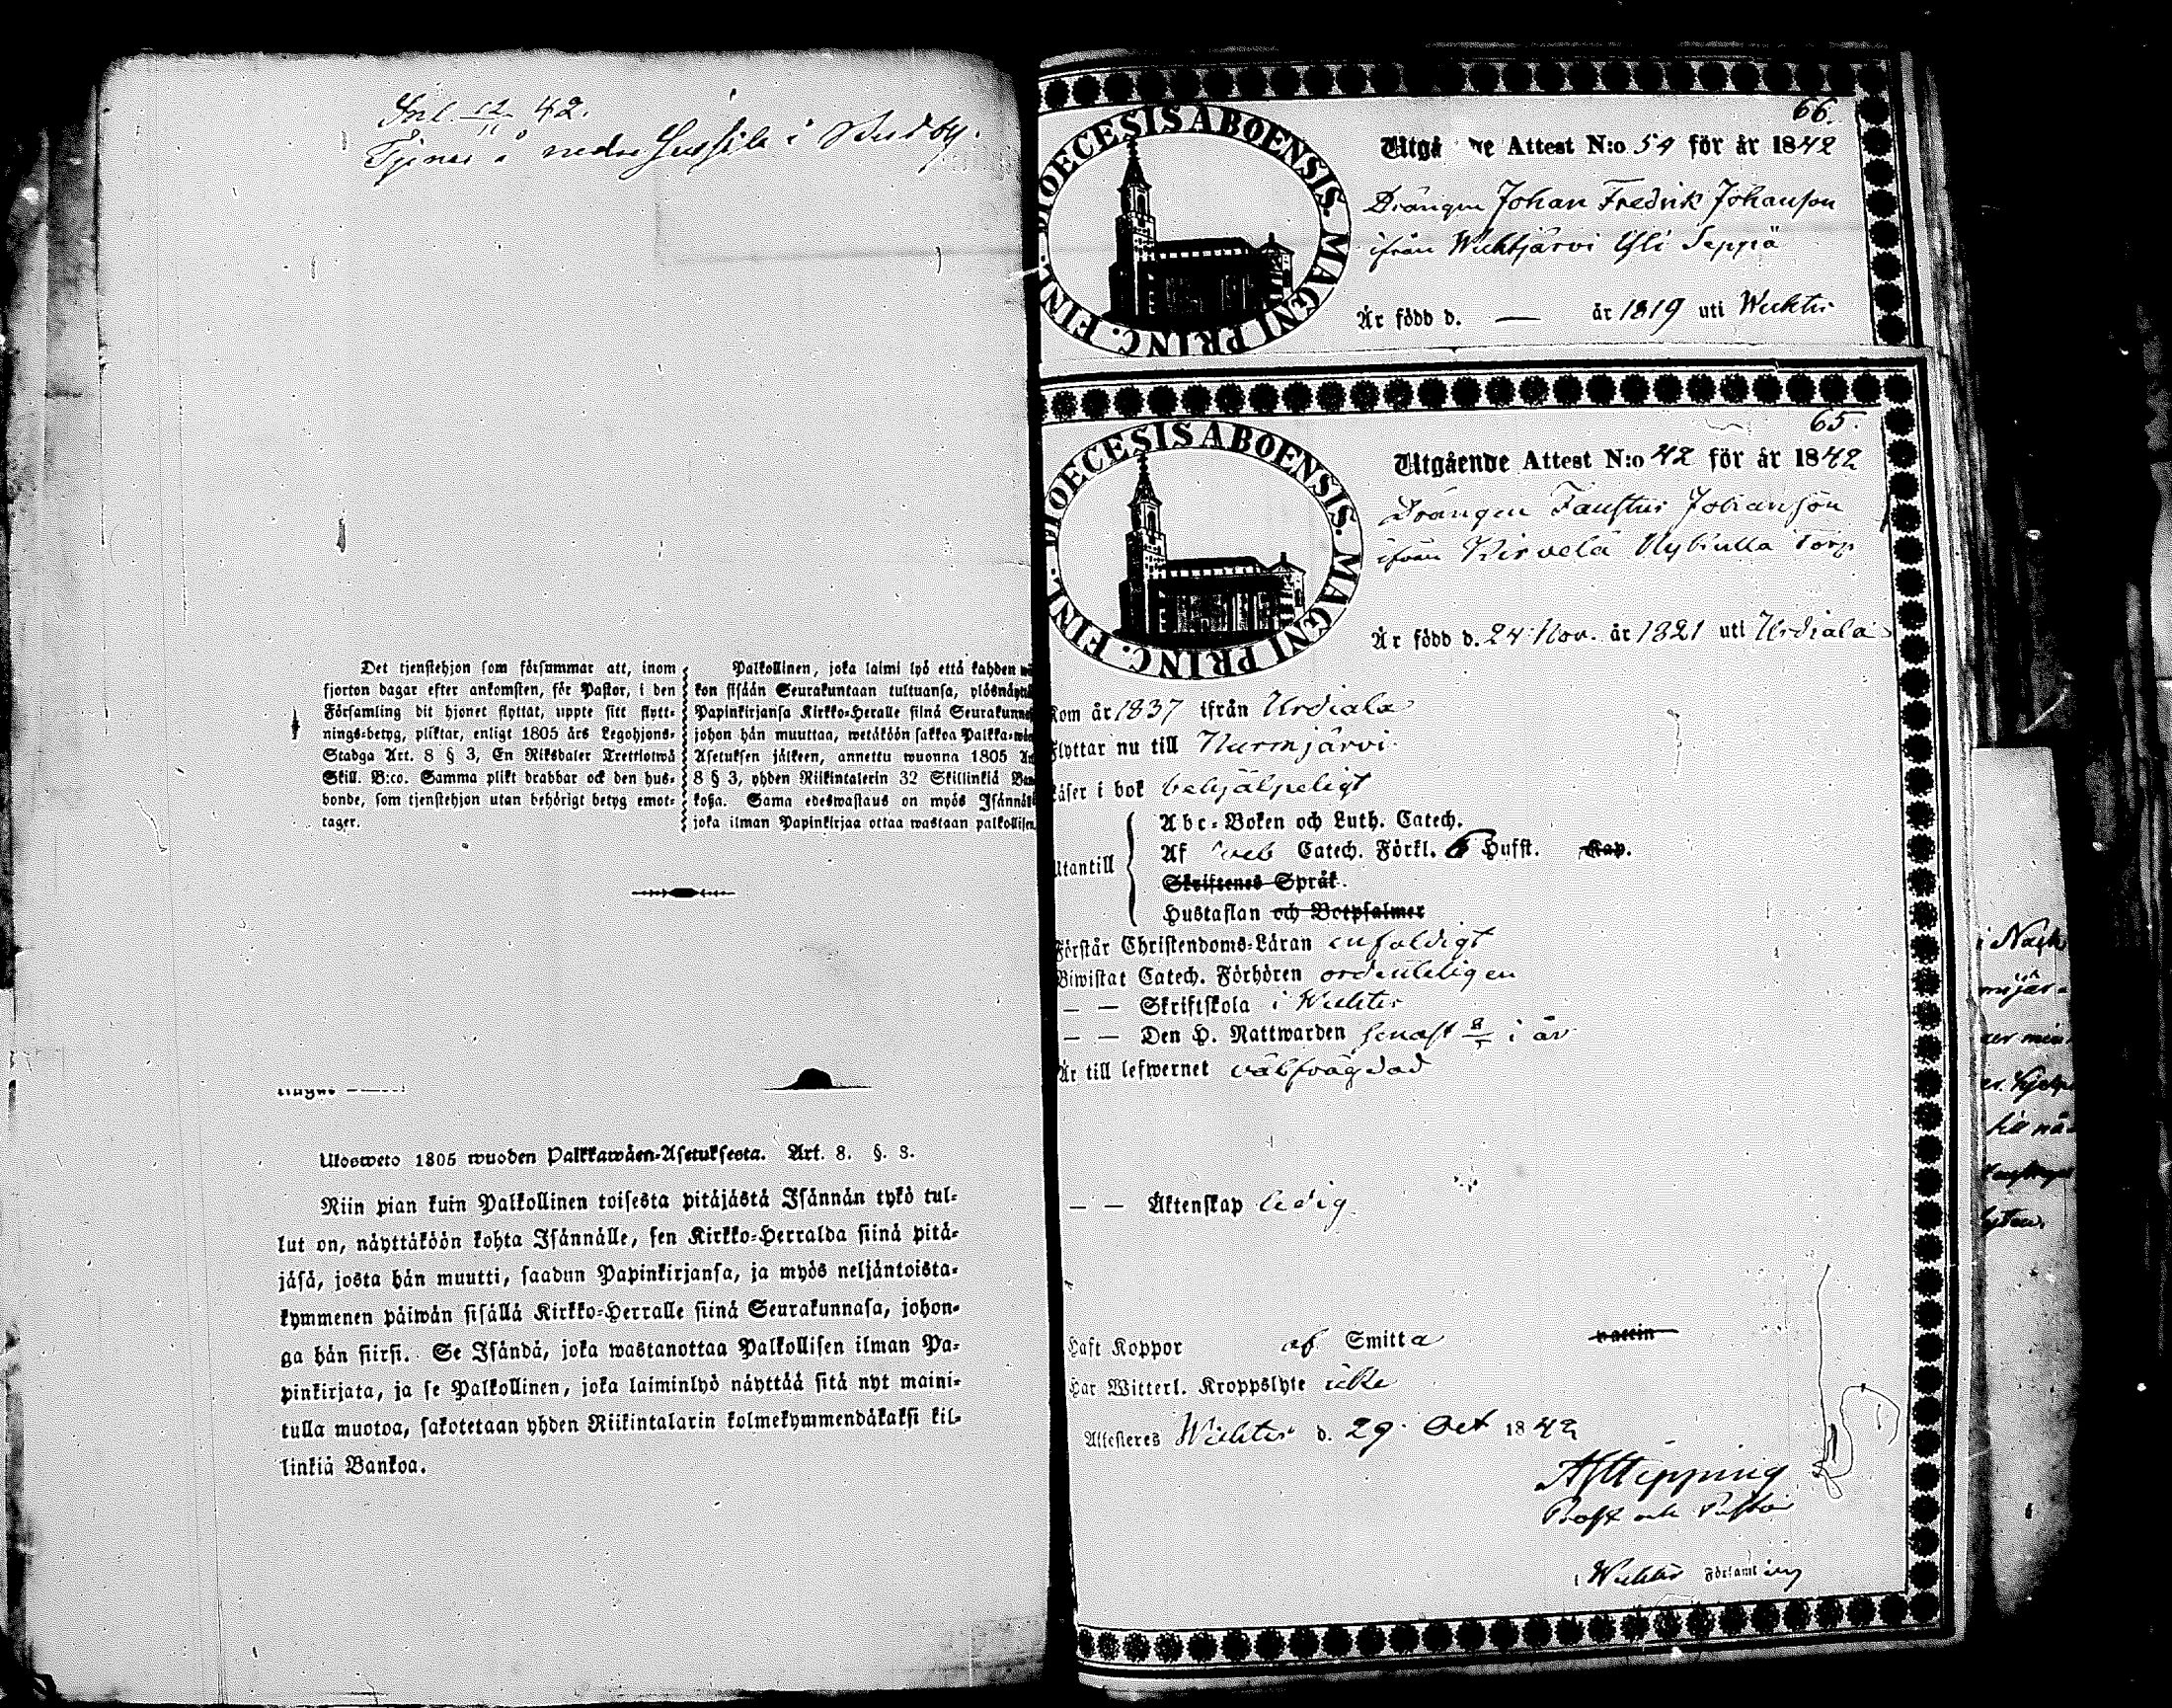 Inl. 12/11 42.
Tjenar å nedre i
Det tjenstehjon som försummar att, inom
fjorton dagar efter ankomsten, för Pastor, i den
Församling dit hjonet flyttat, uppte sitt flytt-
nings-betyg, pliktar, enligt 1805 års Legohjons-
Stadga Art. 8 § 3, En Riksdaler Trettiotwå
Skill. B:co. Samma plikt drabbar ock den hus-
bonde, som tjenstehjon utan behörigt betyg emot-
tager.
Palkollinen, joka laimi lyö että kahden
kon sisään Seurakuntaan tultuansa, ylösnäyttä
Papinkirjansa Kirkko-Heralle siinä Seurakunnas
johon hän muuttaa, wetäköön sakkoa Palkka-wäen
Asetuksen jälkeen, annettu wuonna 1805
8 § 3, yhden Riikintalerin 32 Skillinkiä
koßa. Sama edeswastaus on myös Isännäll
joka ilman Papinkirjaa ottaa wastaan palkollisen
Ulosweto 1805 wuoden Palkkawäen-Asetuksesta. Art. 8. §. 3.
Niin pian kuin Palkollinen toisesta pitäjästä Isännän tykö tul-
lut on, näyttäköön kohta Isännälle, sen Kirkko-Herralda siinä pitä-
jäsä, josta hän muutti, saadun Papinkirjansa, ja myös neljäntoista-
kymmenen päiwän sisällä Kirkko-Herralle siinä Seurakunnasa, johon-
ga hän siirsi. Se Isändä, joka wastanottaa Palkollisen ilman Pa-
pinkirjata, ja se Palkollinen, joka laiminlyö näyttää sitä nyt maini-
tulla muotoa, sakotetaan yhden Riikintalarin kolmekymmendäkaksi kil-
linkiä Bankoa.
66.
DIOECESIS ABOENSIS. MAGNI PRINC. FINL.
Utgå de Attest N:o 54 för år 1842
Drängen Johan Fredrik Johansson
ifrån Wichtjärvi Yli Seppä
Är född d. — år 1819 uti Wichtis
65.
DIOECESIS ABOENSIS. MAGNI PRINC. FINL.
Utgående Attest N:o 42 för år 1842
Drängen Faustus Johansson
ifrån Kirvelä Torp
Är född d. 24 Nov. år 1821 uti Urdiala
Kom år 1837 ifrån Urdiala
Flyttar nu till Nurmjärvi
Läser i bok behjälpeligt
Utantill
Abc-Boken och Luth. Catech.
Af Sveb Catech. Förkl. 6 Hufst. Kap.
Skriftenes Språk.
Hustaflan och Botpsalmer
Förstår Christendoms-Läran enfaldigt
Biwistat Catech. Förhören ordenteligen
— — Skriftskola i Wichtis
— — Den H. Nattwarden senast i år
Är till lefwernet välfrägdad
— — Äktenskap ledig
Haft Koppor af Smitta vaccin
Har Witterl. Kroppslyte icke
Attesteres Wichtis d. 29 Oct 1842
Prost och Pastor
i Wichtis Församling